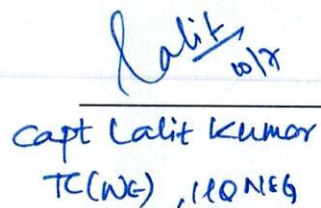 Lalit
Capt Lalit Kumar
TC(WE), HQ NEG